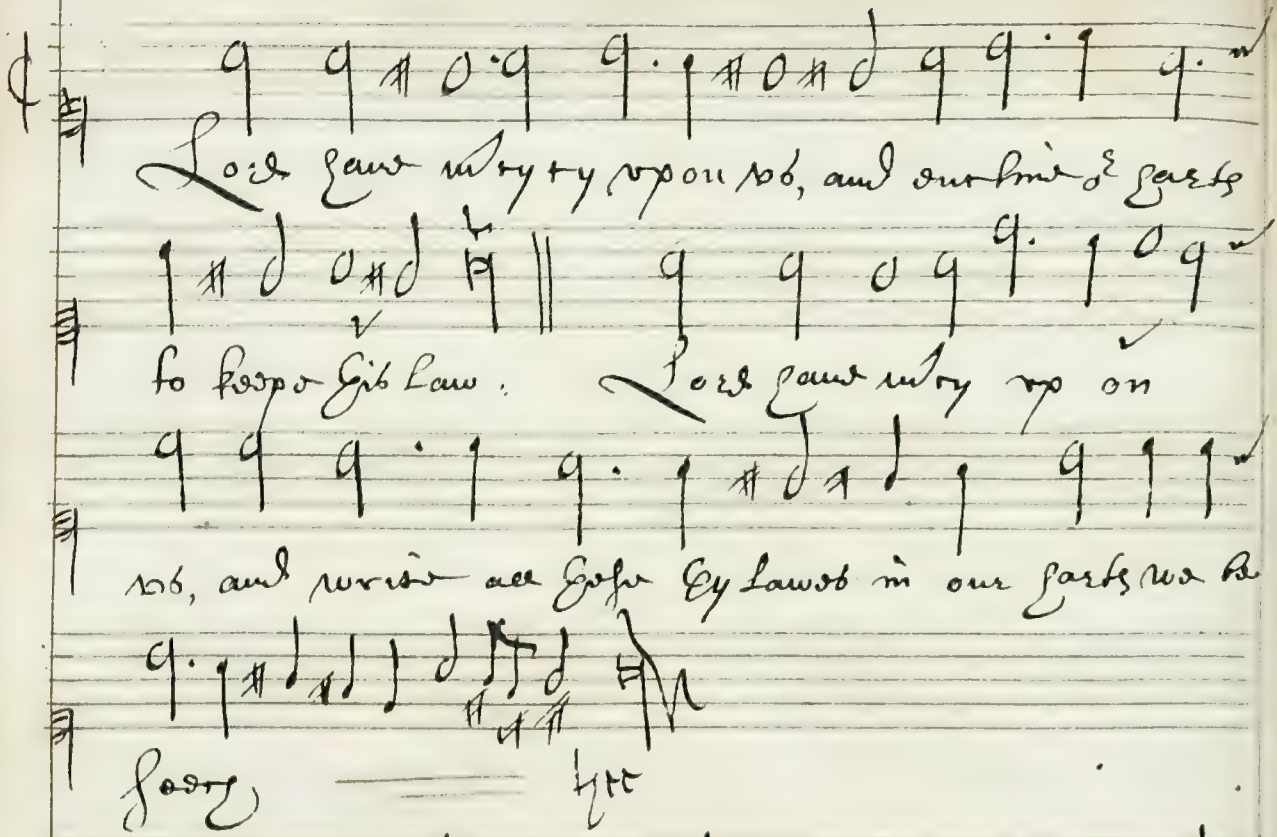 Lord haue mercy vpon vs, and encline or harts
to keepe this law. Lord haue mercy vp on
vs, and write all these thy lawes in our harts we be
seech thee